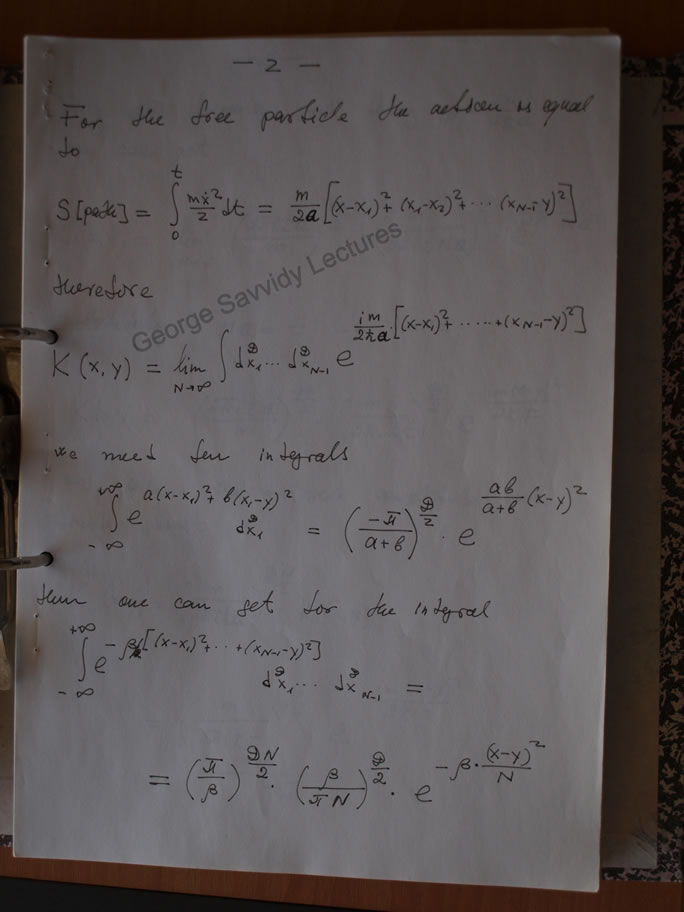 — 2 —
For the free particle the action is equal
to
S[path] = ∫₀ᵗ mẋ²/2 dt = m/2a [(x-x₁)² + (x₁-x₂)² + ··· (x_{N-1}-y)²]
George Savvidy Lectures
therefore
K(x,y) = lim_{N→∞} ∫ d^𝒟x₁ ... d^𝒟x_{N-1} e^{im/2ħa · [(x-x₁)² + ······ + (x_{N-1}-y)²]}
we need few integrals
∫_{-∞}^{+∞} e^{a(x-x₁)² + b(x₁-y)²} d^𝒟x₁ = (-π/a+b)^{𝒟/2} · e^{ab/a+b (x-y)²}
then one can get for the integral
∫_{-∞}^{+∞} e^{-β[(x-x₁)² + ··· + (x_{N-1}-y)²]} d^𝒟x₁ ... d^𝒟x_{N-1} =
= (π/β)^{𝒟N/2} · (β/πN)^{𝒟/2} · e^{-β · (x-y)²/N}